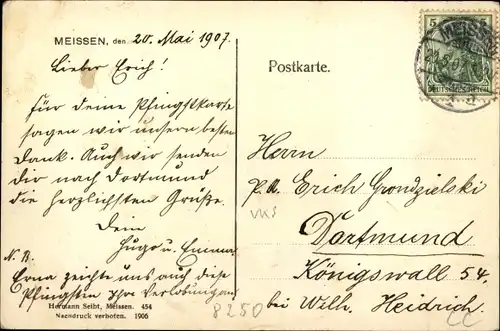 MEISSEN, den 20. Mai 1907.
Lieber Erich!
Für deine Pfingstkarte
sagen wir unsern besten
Dank. Auch wir senden
dir nach Dortmund
die herzlichsten Grüße.
Dein
Hugo u. Emma
N. B.
Erna zeigte uns auch diese
Pfingsten Ihre Verlobung an
Hermann Seibt, Meissen. 454
Nachdruck verboten. 1906
Postkarte.
5 5
DEUTSCHES REICH
MEISSEN
Herrn
Erich Grondzielski
Dortmund
Königswall 54.
bei Wilh. Heidrich.
8250